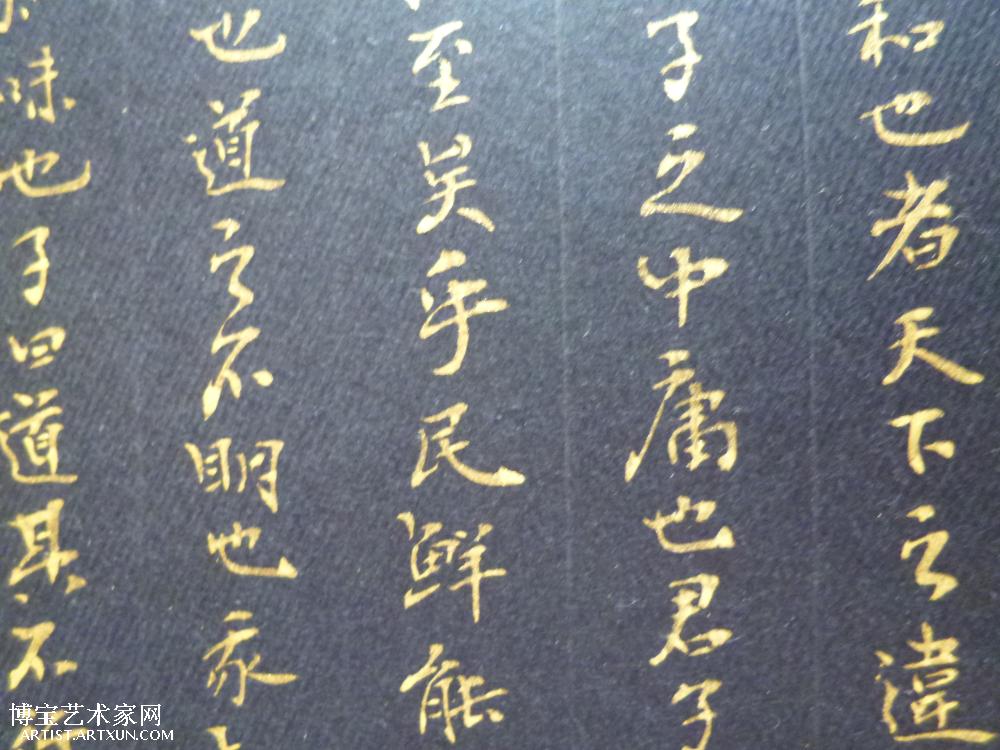 和也者天下之達
子之中庸也君子
至矣乎民鮮能
也道之不明也我
味也子曰道其不
博宝艺术家网
ARTIST.ARTXUN.COM